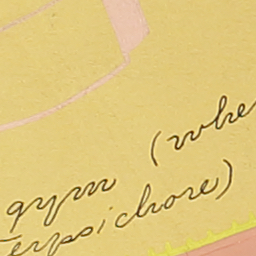 gym (whe
Terpsichore)